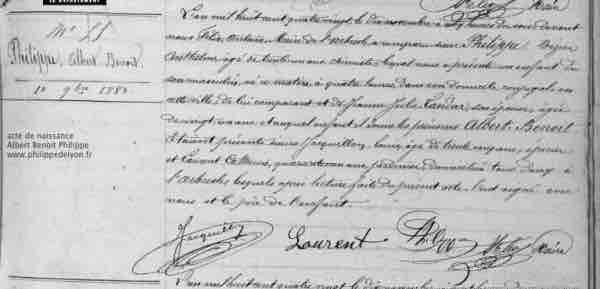 N° 55
Philippe, Albert Benoit
10 9bre 1880
acte de naissance
Albert Benoit Philippe
www.philippedelyon.fr
Maire
L'an mil huit cent quatre vingt le dix novembre à du soir devant
nous Félix Maire de l'Arbresle a comparu sieur Philippe
Anthelme âgé de trente un ans chimiste lequel nous a présenté un enfant du
sexe masculin, né ce matin à quatre heures dans son domicile conjugal en
cette ville, de lui comparant et de Jeanne Julie Landar, son épouse, âgée
de vingt un ans et auquel enfant il donne les prénoms Albert, Benoit.
Étaient présents sieurs Jacquillon, Louis, âgé de trente ans, épicier
et Laurent quarante un ans domiciliés tous deux à
l'Arbresle, lesquels après lecture faite du présent acte, l'ont signé avec
nous et le père de l'enfant.
Laurent Maire
L'an mil huit cent quatre vingt le dix novembre